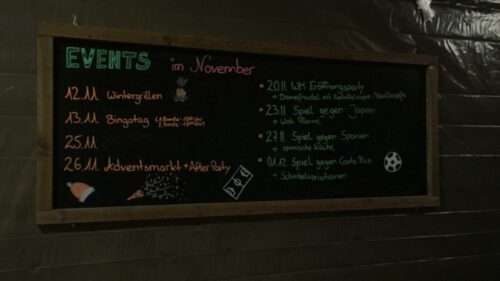 EVENTS im November
12.11. Wintergrillen
13.11. Bingotag
25.11.
26.11. Adventsmarkt + After Party
• 20.11. WM Eröffnungsparty
+
• 23.11. Spiel gegen Japan
+
• 27.11. Spiel gegen Spanien
+ spanische Küche
• 01.12. Spiel gegen Costa Rica
+ Schnitzelvariationen